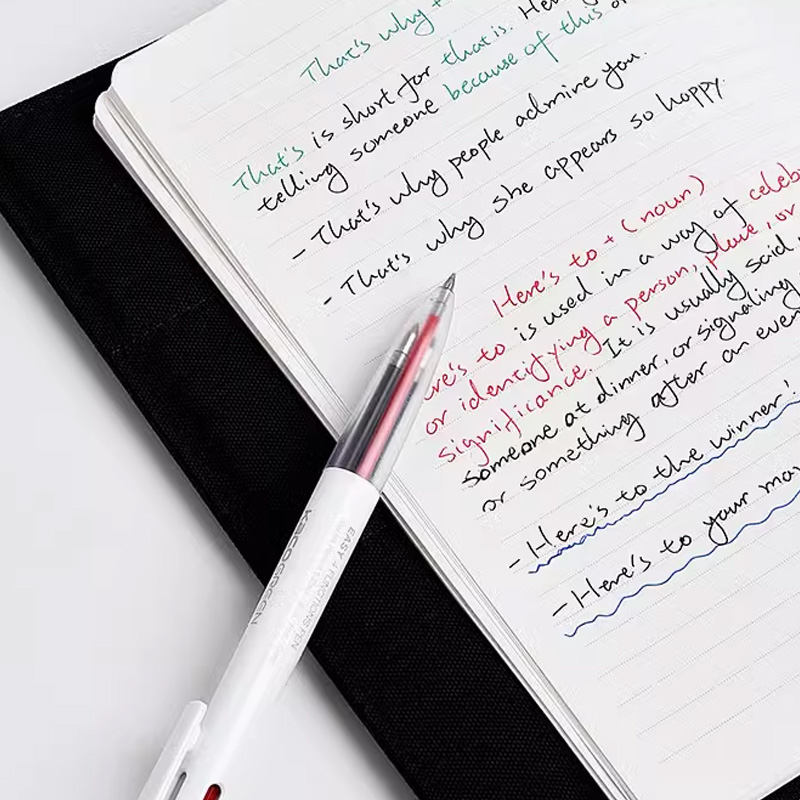 That's why +
That's is short for that is. Here
telling someone because of this or
- That's why people admire you.
- That's why she appears so happy.
Here's to + (noun)
ere's to is used in a way of celebr
or identifying a person, place, or
significance. It is usually said
someone at dinner, or signaling
or something after an even
- Here's to the winner!
- Here's to your mar
KACOGREEN
EASY 4 FUNCTIONS PEN